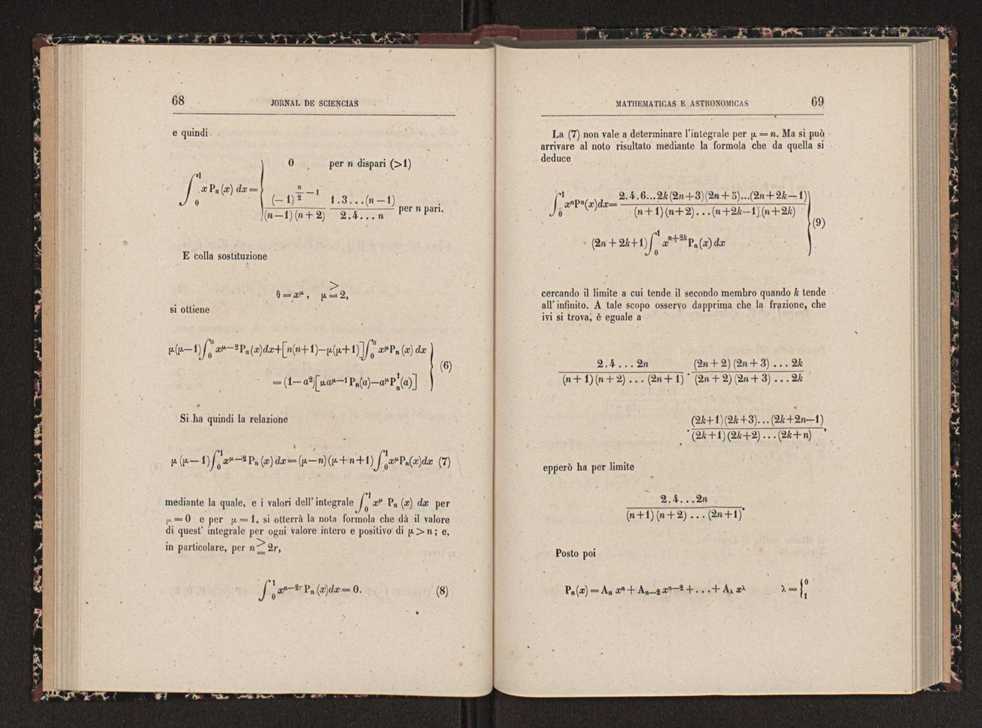 68 JORNAL DE SCIENCIAS
e quindi
∫₀¹ x Pₙ(x) dx = { 0 per n dispari (>1)
(−1)^{n/2 − 1} / (n−1)(n+2) · 1.3...(n−1) / 2.4...n per n pari.
E colla sostituzione
θ = x^μ , μ ≧ 2,
si ottiene
μ(μ−1)∫₀ᵃ x^{μ−2}Pₙ(x)dx+[n(n+1)−μ(μ+1)]∫₀ᵃ x^μ Pₙ(x) dx
= (1−a²)[μa^{μ−1}Pₙ(a)−a^μ P¹ₙ(a)] } (6)
Si ha quindi la relazione
μ(μ−1)∫₀¹ x^{μ−2}Pₙ(x) dx=(μ−n)(μ+n+1)∫₀¹ x^μ Pₙ(x)dx (7)
mediante la quale, e i valori dell' integrale ∫₀¹ x^μ Pₙ (x) dx per
μ = 0 e per μ = 1, si otterrà la nota formola che dà il valore
di quest' integrale per ogni valore intero e positivo di μ > n; e,
in particolare, per n ≧ 2r,
∫₀¹ x^{n−2r} Pₙ (x)dx = 0. (8)
MATHEMATICAS E ASTRONOMICAS 69
La (7) non vale a determinare l'integrale per μ = n. Ma si può
arrivare al noto risultato mediante la formola che da quella si
deduce
∫₀¹ xⁿPⁿ(x)dx= 2.4.6...2k(2n+3)(2n+5)...(2n+2k−1) / (n+1)(n+2)...(n+2k−1)(n+2k)
(2n+2k+1)∫₀¹ x^{n+2k}Pₙ(x) dx } (9)
cercando il limite a cui tende il secondo membro quando k tende
all' infinito. A tale scopo osservo dapprima che la frazione, che
ivi si trova, è eguale a
2.4...2n / (n+1)(n+2)...(2n+1) · (2n+2)(2n+3)...2k / (2n+2)(2n+3)...2k
· (2k+1)(2k+3)...(2k+2n−1) / (2k+1)(2k+2)...(2k+n) ,
epperò ha per limite
2.4...2n / (n+1)(n+2)...(2n+1) .
Posto poi
Pₙ(x) = Aₙ xⁿ + Aₙ₋₂ xⁿ⁻² + ... + A_λ x^λ λ = { 0 1